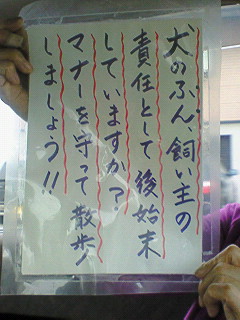 犬のふん、飼い主の
責任として後始末
していますか?
マナーを守って散歩
しましょう!!